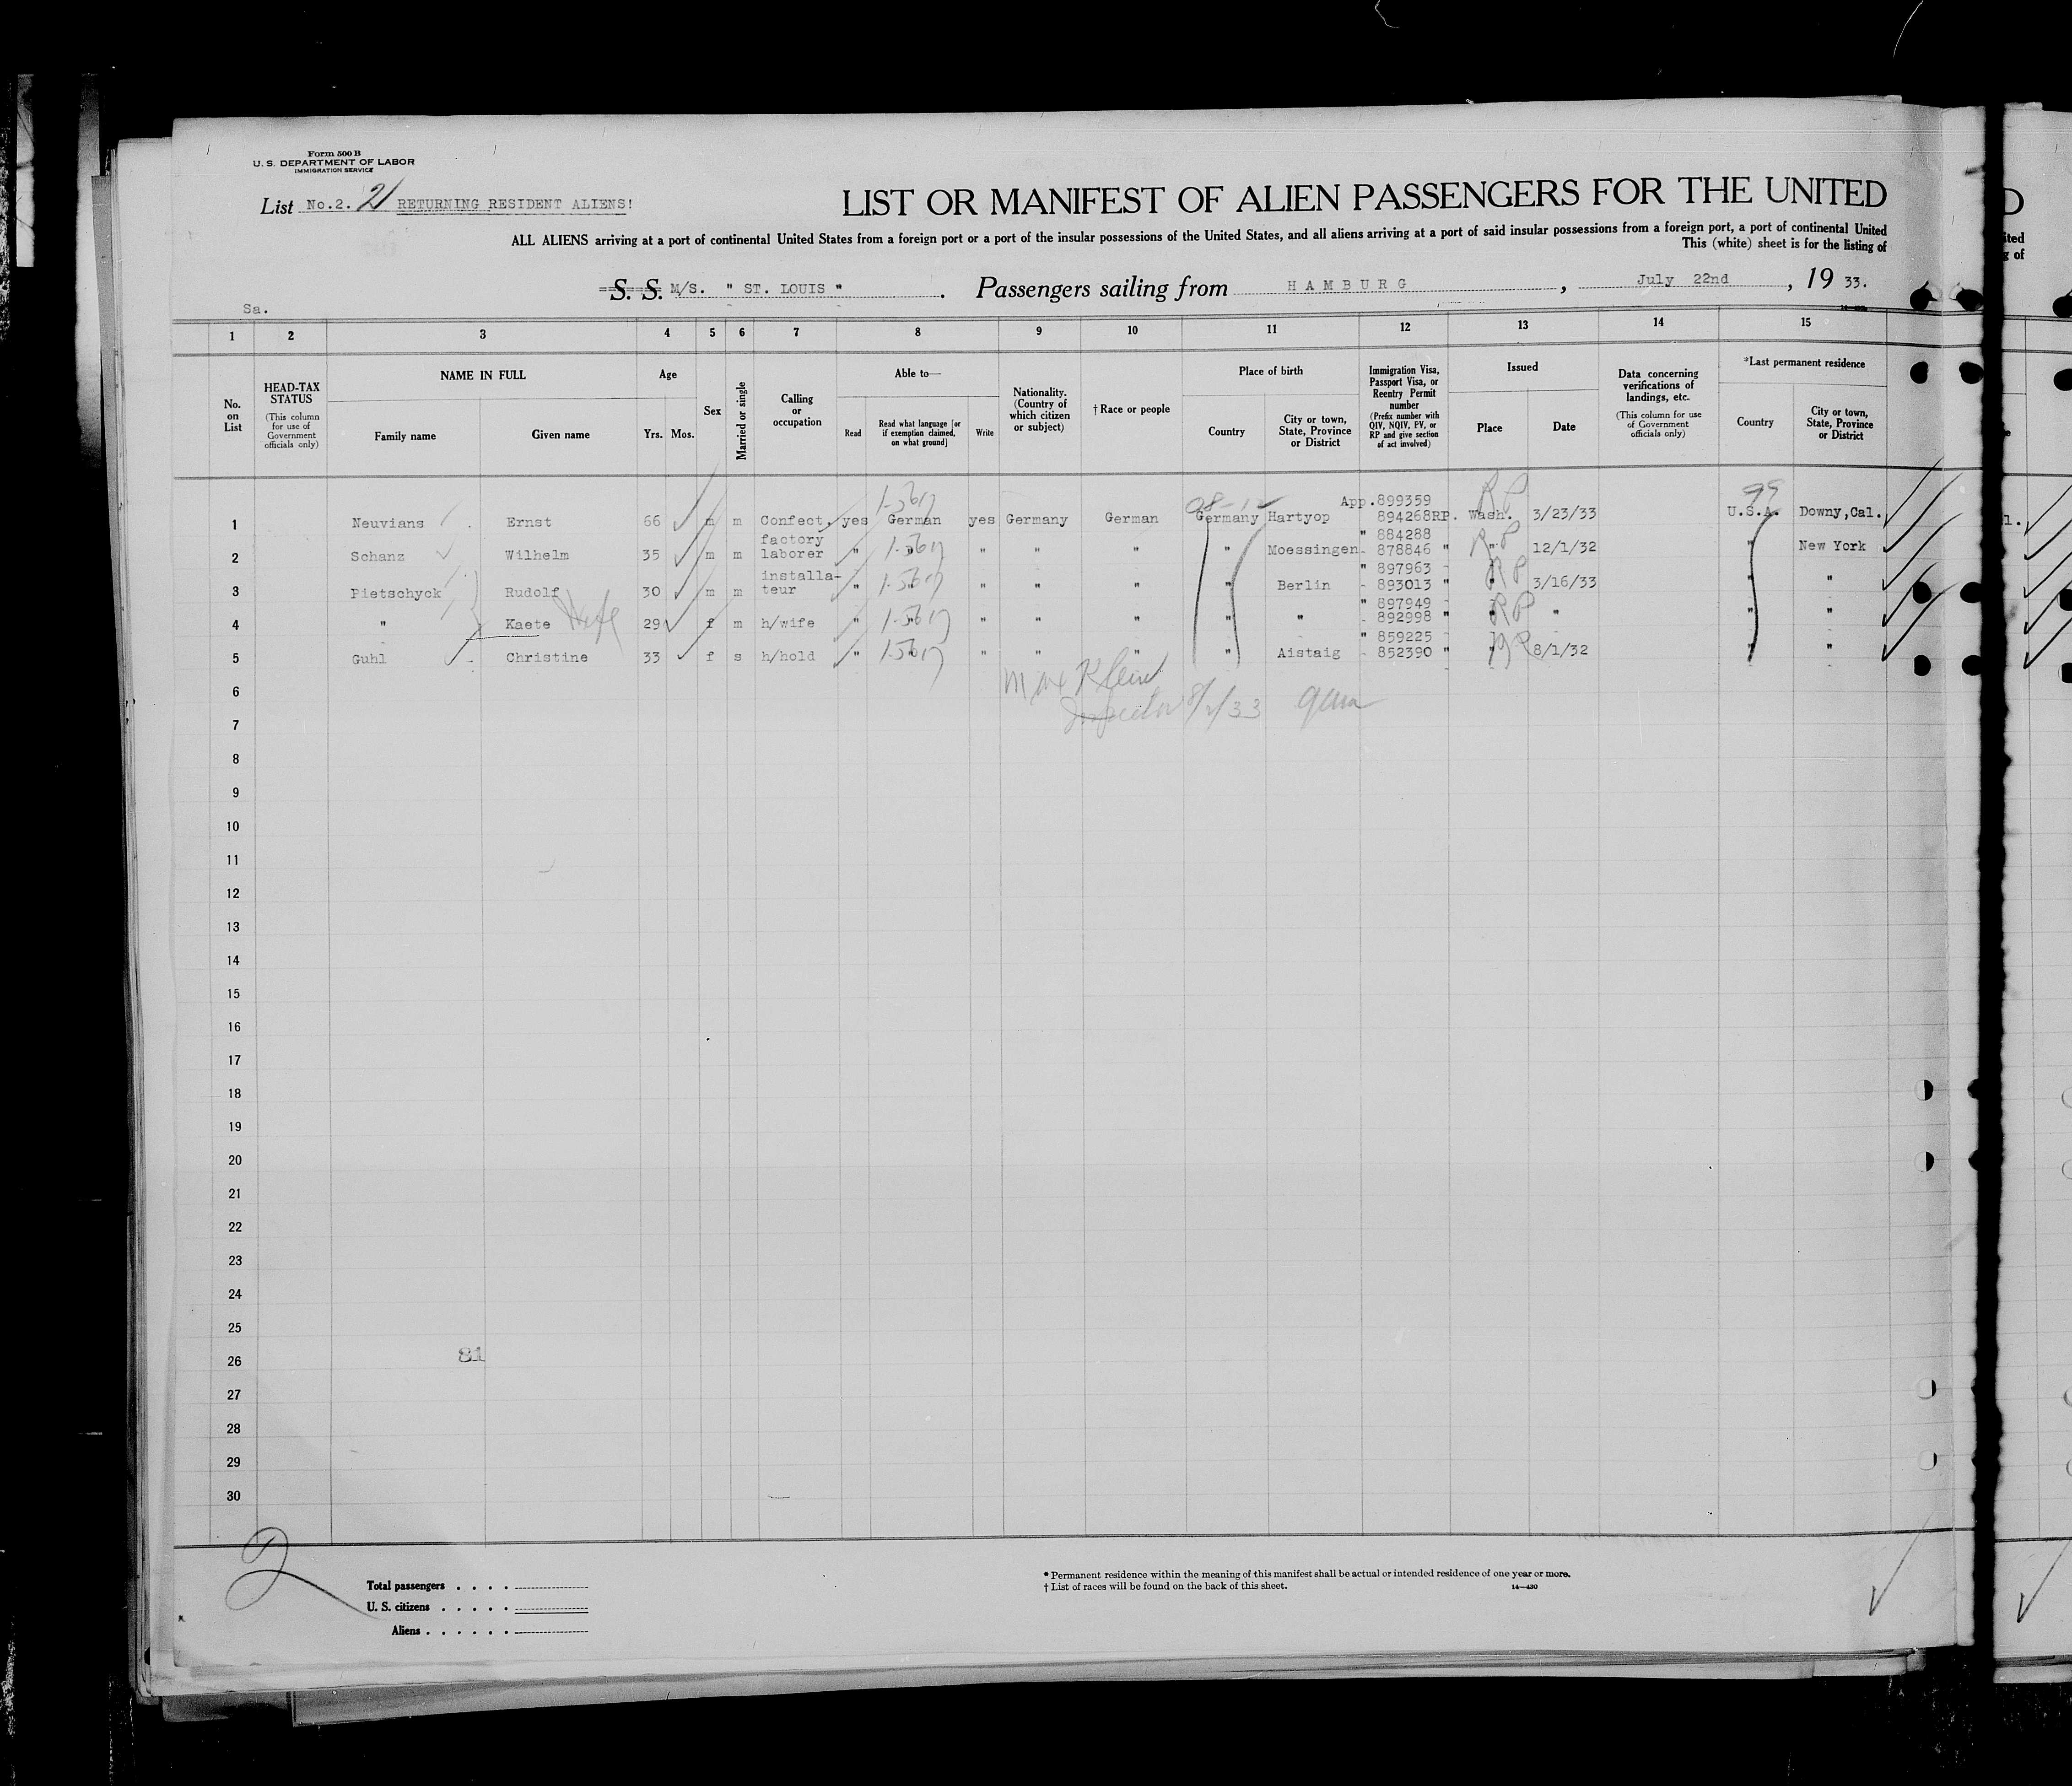 Form 500 B
U. S. DEPARTMENT OF LABOR
IMMIGRATION SERVICE
List No.2. 21 RETURNING RESIDENT ALIENS!
LIST OR MANIFEST OF ALIEN PASSENGERS FOR THE UNITED
ALL ALIENS arriving at a port of continental United States from a foreign port or a port of the insular possessions of the United States, and all aliens arriving at a port of said insular possessions from a foreign port, a port of continental United
This (white) sheet is for the listing of
S. S. M/S. " ST. LOUIS " . Passengers sailing from HAMBURG , July 22nd , 19 33.
Sa.
1 2 3 4 5 6 7 8 9 10 11 12 13 14 15
No. on List
HEAD-TAX STATUS
(This column for use of Government officials only)
NAME IN FULL
Family name Given name
Age
Yrs. Mos.
Sex
Married or single
Calling or occupation
Able to—
Read
Read what language [or if exemption claimed, on what ground]
Write
Nationality. (Country of which citizen or subject)
† Race or people
Place of birth
Country
City or town, State, Province or District
Immigration Visa, Passport Visa, or Reentry Permit number
(Prefix number with QIV, NQIV, PV, or RP and give section of act involved)
Issued
Place Date
Data concerning verifications of landings, etc.
(This column for use of Government officials only)
*Last permanent residence
Country
City or town, State, Province or District
App. 899359 RP 99
1 Neuvians Ernst 66 m m Confect. yes German yes Germany German Germany Hartyop 894268RP. Wash. 3/23/33 U.S.A. Downy,Cal.
factory " 884288
2 Schanz Wilhelm 35 m m laborer " " " " " " Moessingen 878846 " " 12/1/32 " New York
installa- " 897963
3 Pietschyck Rudolf 30 m m teur " " " " " " Berlin 893013 " " 3/16/33 " "
" 897949
4 " Kaete Wife 29 f m h/wife " " " " " " " 892998 " " " " "
" 859225
5 Guhl Christine 33 f s h/hold " " " " " " Aistaig 852390 " " 8/1/32 " "
Max Klein
6
Inspector 8/1/33
7
8
9
10
11
12
13
14
15
16
17
18
19
20
21
22
23
24
25
26 81
27
28
29
30
2
Total passengers
U. S. citizens
Aliens
* Permanent residence within the meaning of this manifest shall be actual or intended residence of one year or more.
† List of races will be found on the back of this sheet. 14—430